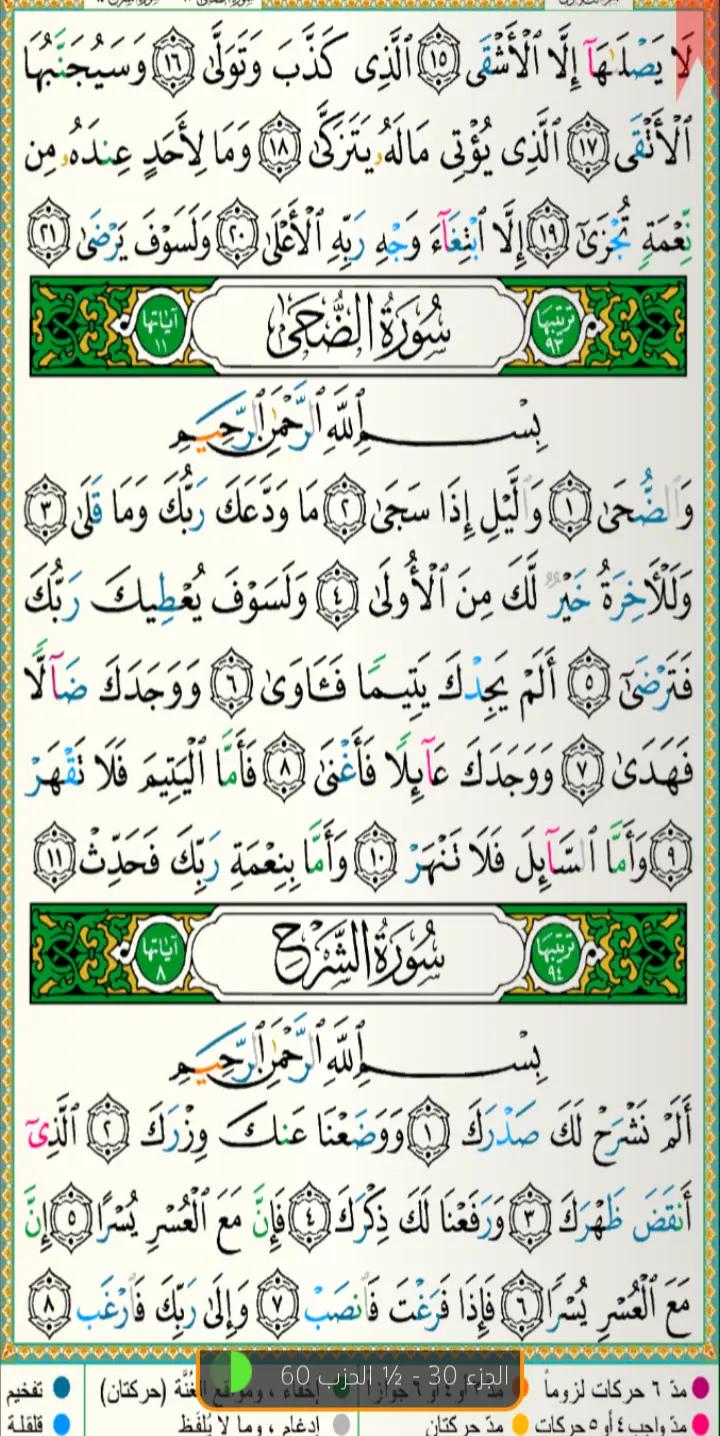 لَا يَصْلَىٰهَآ إِلَّا ٱلْأَشْقَى ١٥ ٱلَّذِى كَذَّبَ وَتَوَلَّىٰ ١٦ وَسَيُجَنَّبُهَا
ٱلْأَتْقَى ١٧ ٱلَّذِى يُؤْتِى مَالَهُۥ يَتَزَكَّىٰ ١٨ وَمَا لِأَحَدٍ عِندَهُۥ مِن
نِّعْمَةٍ تُجْزَىٰٓ ١٩ إِلَّا ٱبْتِغَآءَ وَجْهِ رَبِّهِ ٱلْأَعْلَىٰ ٢٠ وَلَسَوْفَ يَرْضَىٰ ٢١
ترتيبها ٩٣ سُورَةُ الضُّحَىٰ آياتها ١١
بِسْمِ ٱللَّهِ ٱلرَّحْمَٰنِ ٱلرَّحِيمِ
وَٱلضُّحَىٰ ١ وَٱلَّيْلِ إِذَا سَجَىٰ ٢ مَا وَدَّعَكَ رَبُّكَ وَمَا قَلَىٰ ٣
وَلَلْأَخِرَةُ خَيْرٌ لَّكَ مِنَ ٱلْأُولَىٰ ٤ وَلَسَوْفَ يُعْطِيكَ رَبُّكَ
فَتَرْضَىٰٓ ٥ أَلَمْ يَجِدْكَ يَتِيمًا فَـَٔاوَىٰ ٦ وَوَجَدَكَ ضَآلًّا
فَهَدَىٰ ٧ وَوَجَدَكَ عَآئِلًا فَأَغْنَىٰ ٨ فَأَمَّا ٱلْيَتِيمَ فَلَا تَقْهَرْ
٩ وَأَمَّا ٱلسَّآئِلَ فَلَا تَنْهَرْ ١٠ وَأَمَّا بِنِعْمَةِ رَبِّكَ فَحَدِّثْ ١١
ترتيبها ٩٤ سُورَةُ الشَّرْحِ آياتها ٨
بِسْمِ ٱللَّهِ ٱلرَّحْمَٰنِ ٱلرَّحِيمِ
أَلَمْ نَشْرَحْ لَكَ صَدْرَكَ ١ وَوَضَعْنَا عَنكَ وِزْرَكَ ٢ ٱلَّذِىٓ
أَنقَضَ ظَهْرَكَ ٣ وَرَفَعْنَا لَكَ ذِكْرَكَ ٤ فَإِنَّ مَعَ ٱلْعُسْرِ يُسْرًا ٥ إِنَّ
مَعَ ٱلْعُسْرِ يُسْرًا ٦ فَإِذَا فَرَغْتَ فَٱنصَبْ ٧ وَإِلَىٰ رَبِّكَ فَٱرْغَب ٨
الجزء 30 - ½ الحزب 60
مدّ ٦ حركات لزوماً إخفاء ، ومواقع الغُنَّة (حركتان) تفخيم
مدّ واجب ٤ أو ٥ حركات مدّ حركتان إدغام ، وما لا يُلفَظ قلقلة